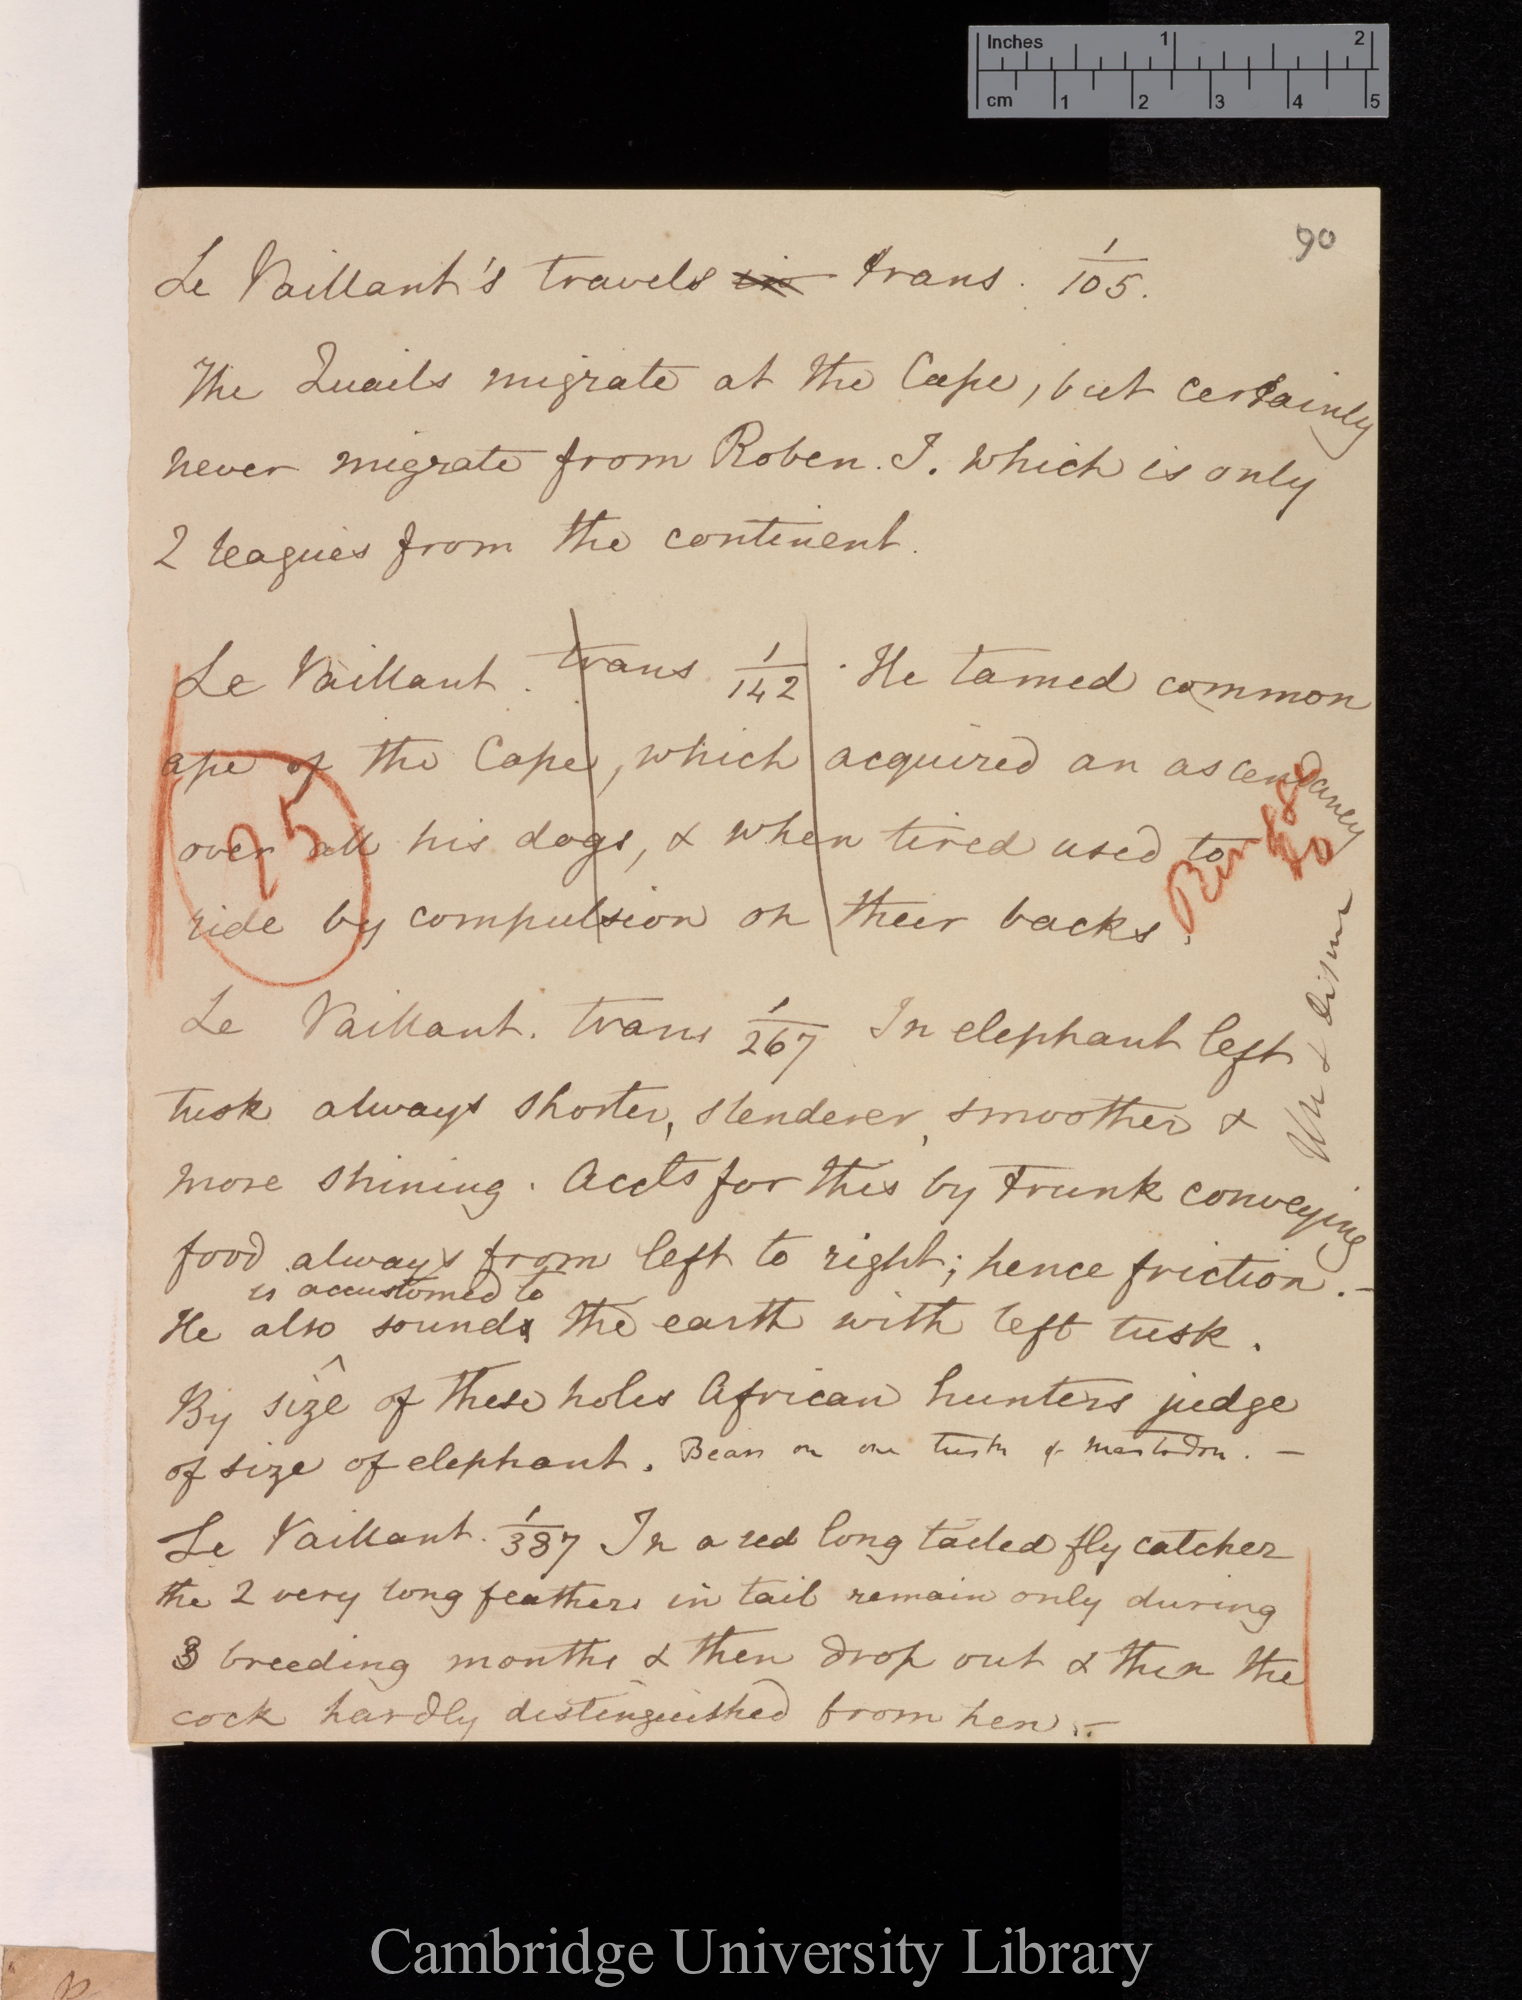 Inches 1 2
cm 1 2 3 4 5
90
Le Vaillant's travels in trans. 1/105.
The Quails migrate at the Cape, but certainly
never migrate from Roben. I. which is only
2 leagues from the continent.
Le Vaillant. trans 1/142. He tamed common
ape of the Cape, which acquired an ascendancy
over all his dogs, & when tired used to
ride by compulsion on their backs.
25
Le Vaillant. trans 1/267 In elephant left
tusk always shorter, slenderer, smoother &
more shining. Accts for this by trunk conveying
food always from left to right; hence friction.—
is accustomed to
He also sounds the earth with left tusk.
By size of these holes African hunters judge
of size of elephant. Bears on one tusk of Mastodon. —
Use & disuse
Le Vaillant. 1/387 In a red long tailed fly catcher
the 2 very long feathers in tail remain only during
3 breeding months & then drop out & then the
cock hardly distinguished from hen.—
Cambridge University Library